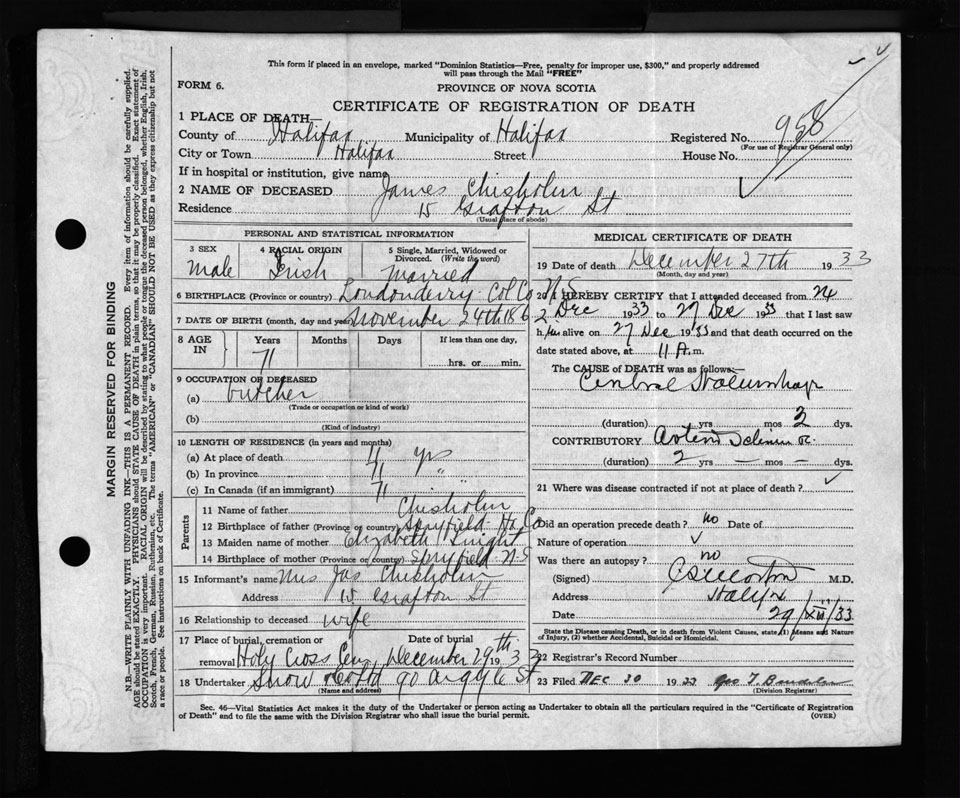 This form if placed in an envelope, marked "Dominion Statistics—Free, penalty for improper use, $300," and properly addressed
will pass through the Mail "FREE"
FORM 6.
PROVINCE OF NOVA SCOTIA
CERTIFICATE OF REGISTRATION OF DEATH
1 PLACE OF DEATH—
County of Halifax Municipality of Halifax Registered No. 958
(For use of Registrar General only)
City or Town Halifax Street House No.
If in hospital or institution, give name
2 NAME OF DECEASED James Chisholm
Residence 15 Grafton St
(Usual place of abode)
PERSONAL AND STATISTICAL INFORMATION
3 SEX 4 RACIAL ORIGIN 5 Single, Married, Widowed or Divorced. (Write the word)
Male Irish Married
6 BIRTHPLACE (Province or country) Londonderry Col Co N.S
7 DATE OF BIRTH (month, day and year) November 24th 1862
8 AGE IN Years Months Days If less than one day,
71 hrs. or min.
9 OCCUPATION OF DECEASED
(a) butcher
(Trade or occupation or kind of work)
(b)
(Kind of industry)
10 LENGTH OF RESIDENCE (in years and months)
(a) At place of death 71 yrs
(b) In province 71 "
(c) In Canada (if an immigrant) 71 "
Parents
11 Name of father Chisholm
12 Birthplace of father (Province or country) Spryfield Hx Co
13 Maiden name of mother Elizabeth Knight
14 Birthplace of mother (Province or country) Spryfield N.S
15 Informant's name Mrs Jas Chisholm
Address 15 Grafton St
16 Relationship to deceased wife
17 Place of burial, cremation or removal Holy Cross Cem Date of burial December 29th 1933
18 Undertaker Snow & Co Ltd 90 Argyle St
(Name and address)
MEDICAL CERTIFICATE OF DEATH
19 Date of death December 27th 1933
(Month, day and year)
20 I HEREBY CERTIFY that I attended deceased from 24
Dec 1933 to 27 Dec 1933 that I last saw
him alive on 27 Dec 1933 and that death occurred on
date stated above, at 11 A.m.
The CAUSE OF DEATH was as follows:—
(duration) yrs mos 2 dys.
CONTRIBUTORY
(duration) 2 yrs — mos — dys.
21 Where was disease contracted if not at place of death?
Did an operation precede death? no Date of
Nature of operation
Was there an autopsy? no
(Signed) M.D.
Address Halifax
Date 29/XII/33
State the Disease causing Death, or in death from Violent Causes, state (1) Means and Nature
of Injury, (2) whether Accidental, Suicidal or Homicidal.
22 Registrar's Record Number
23 Filed DEC 30 1933 Geo T.
(Division Registrar)
Sec. 46—Vital Statistics Act makes it the duty of the Undertaker or person acting as Undertaker to obtain all the particulars required in the "Certificate of Registration
of Death" and to file the same with the Division Registrar who shall issue the burial permit.
(OVER)
MARGIN RESERVED FOR BINDING
N.B.—WRITE PLAINLY WITH UNFADING INK—THIS IS A PERMANENT RECORD. Every item of information should be carefully supplied.
AGE should be stated EXACTLY. PHYSICIANS should STATE CAUSE OF DEATH in plain terms, so that it may be properly classified. Exact statement of
OCCUPATION is very important. RACIAL ORIGIN will be described by stating to what people or tongue the deceased person belonged, whether English, Irish,
Scotch, French, German, Russian, Ruthenian, etc. The terms "AMERICAN" or "CANADIAN" SHOULD NOT BE USED as they express citizenship but not
a race or people. See instructions on back of Certificate.